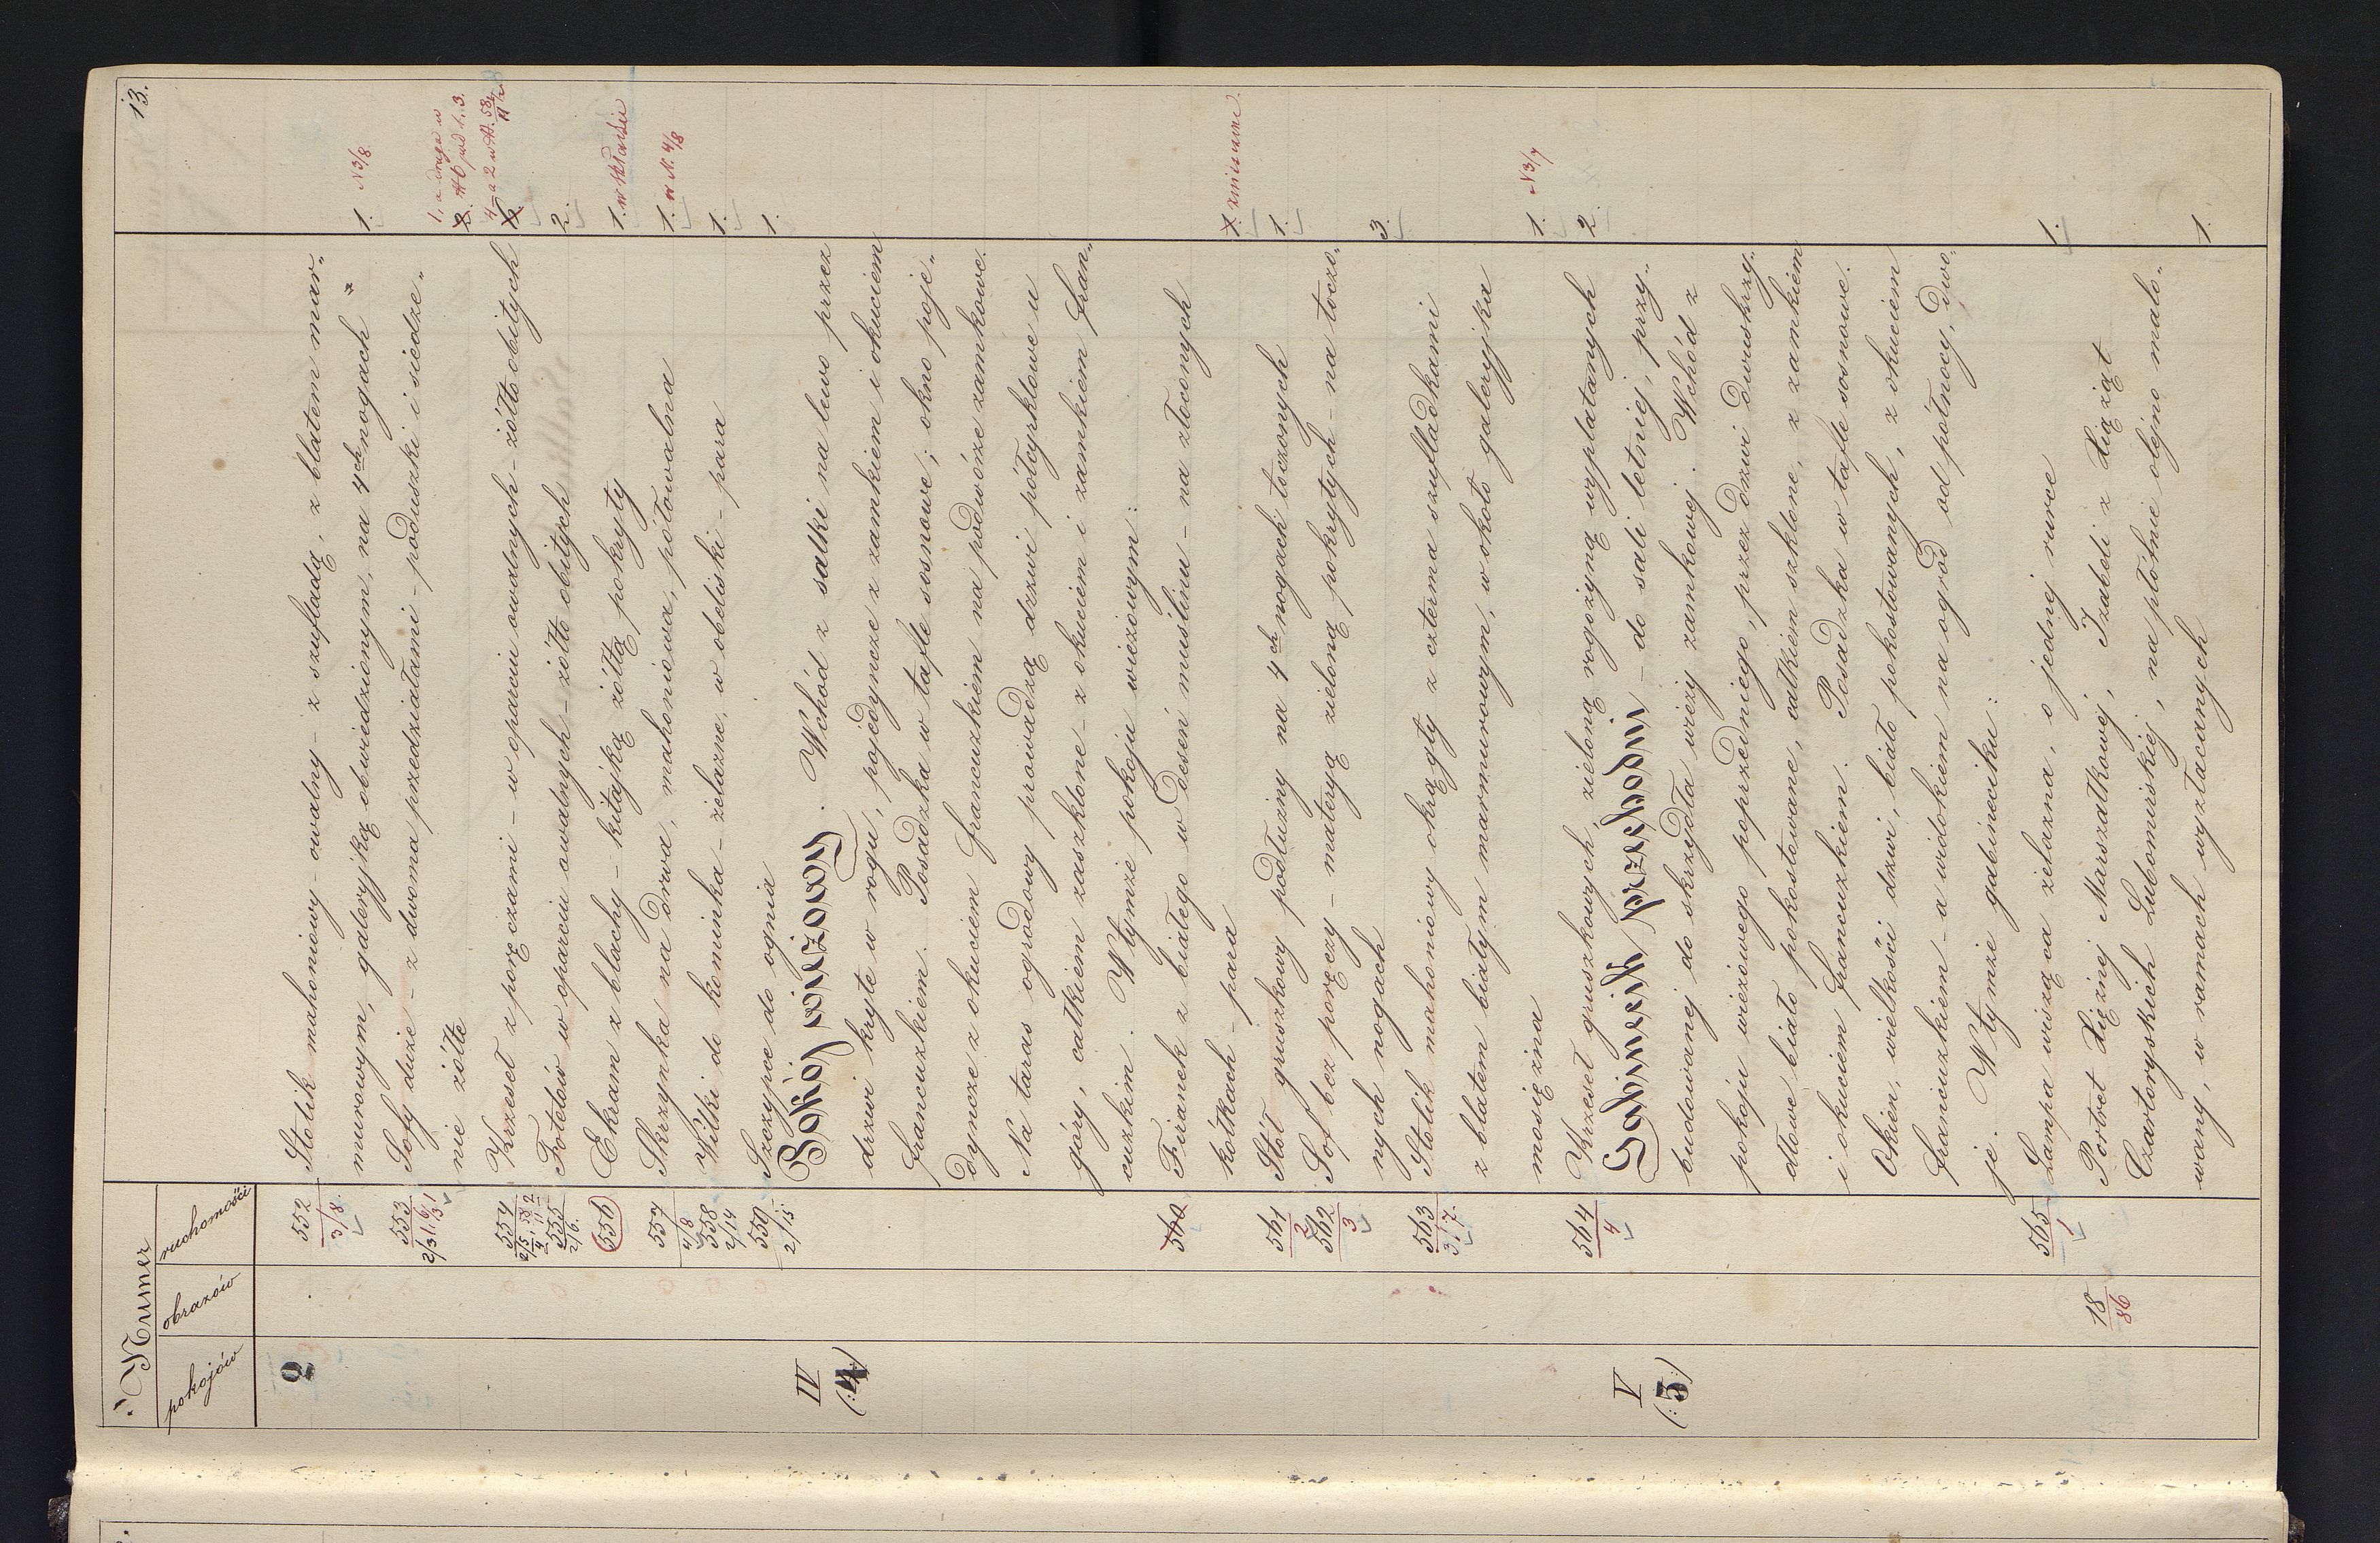 13.
Numer
pokojów obrazów ruchomości
2 552 Stolik mahoniowy - owalny - z szufladą, z blatem mar-
3/8 murowym, galeryjką obwiedzionym, na 4ch nogach 1. N 3/8
553 Sofy duże - z dwoma przedziałami - poduszki i siedze- 1, a druga w
nie żółte 2.
554 Krzeseł z poręczami - w oparciu owalnych - żółto obitych
555 Fotelów w oparciu owalnych - żółto obitych 2.
2/6.
556 Ekram z blachy - kitajką żółtą pokryty 1. w składzie
557 Skrzynka na drwa, mahoniowa, półowalna 1. w N. 4/8
4/8
558 Wilki do kominka - żelazne, w obeliski - para 1.
2/14
559 Szczypce do ognia 1.
2/15
IV Pokój wieżowy. Wchód z salki na lewo przez
(:4:) drzwi kryte w rogu, pojedyncze z zamkiem i okuciem
francuzkiem. Posadzka w tafle sosnowe; okno poje-
dyncze z okuciem francuzkiem na podwórze zamkowe.
Na taras ogrodowy prowadzą drzwi półcyrklowe u
góry, całkiem zaszklone - z okuciem i zamkiem fran-
cuzkim. W tymże pokoju wieżowym:
560 Firanek z białego w deseń muślinu - na złoconych
kółkach - para 1. zniszczone
561 Stół gruszkowy podłużny na 4ch nogach toczonych 1.
2
562 Sof bez poręczy - materyą zieloną pokrytych - na toczo-
3 nych nogach 3.
563 Stolik mahoniowy okrągły z czterma szufladkami
3/7. z blatem białym marmurowym, w około galeryjka
mosiężna 1. N 3/7
564 Krzeseł gruszkowych, zieloną rogożyną wyplatanych 2.
4
V Gabinecik przechodni - do sali letniej, przy-
(:5:) budowanej do skrzydła wieży zamkowej. Wchód z
pokoju wieżowego poprzedniego, przez drzwi dwuskrzy-
dłowe biało pokostowane, całkiem szklone, z zamkiem
i okuciem francuzkiem. Posadzka w tafle sosnowe.
Okien, wielkości drzwi, biało pokostowanych, z okuciem
francuzkiem - a widokiem na ogród od północy, dwo-
je. W tymże gabineciku:
565 Lampa wisząca żelazna, o jednej rurce 1.
1
18 Portret Xiężnej Marszałkowej, Izabeli z Xiążąt
86 Czartoryskich Lubomirskiej, na płótnie olejno malo-
wany, w ramach wyzłacanych 1.